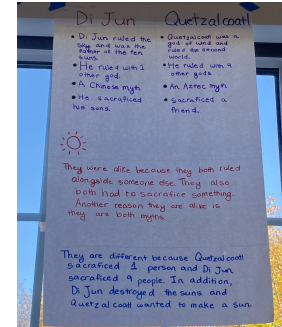 Di Jun
• Di Jun ruled the
sky and was the
father of the ten
suns.
• He ruled with 1
other god.
• A Chinese myth
• He sacraficed
his suns.
Quetzalcoatl
• Quetzalcoatl was a
god of wind and
ruled the second
world.
• He ruled with 4
other gods
• An Aztec myth
• Sacraficed a
friend.
They were alike because they both ruled
alongside someone else. They also
both had to sacrifice something.
Another reason they are alike is
they are both myths.
They are different because Quetzalcoatl
sacraficed 1 person and Di Jun
sacraficed 9 people. In addition,
Di Jun destroyed the suns and
Quetzalcoatl wanted to make a sun.